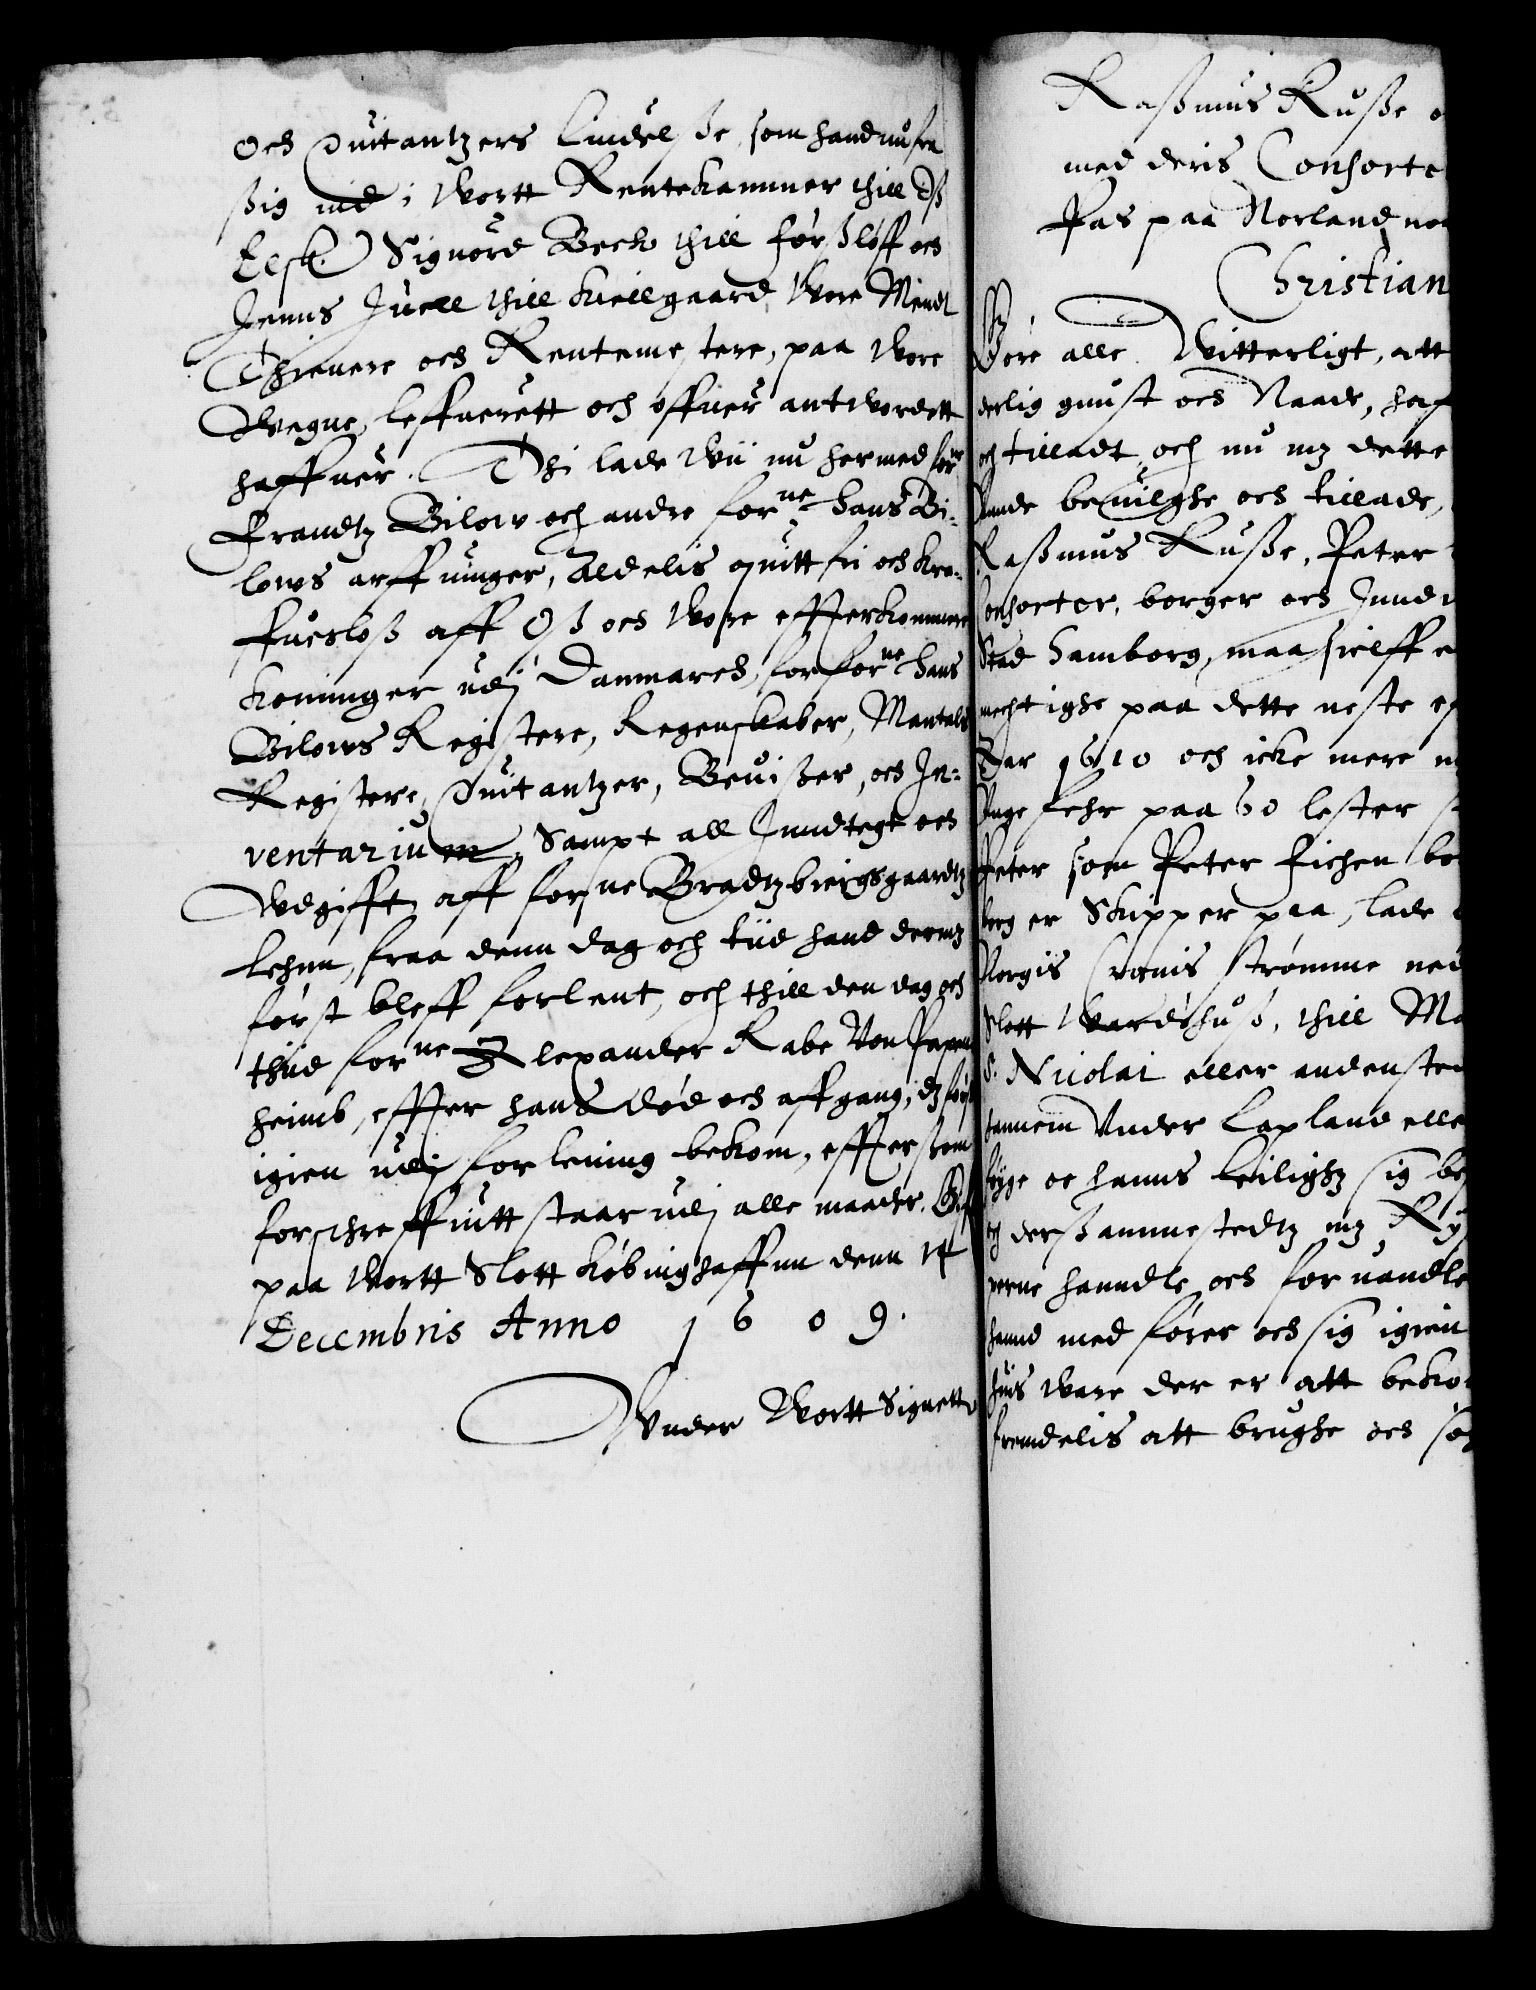 Och Quitantzers liudelße, som hand nu fra
ßig ind i Wortt Rentekammer thill Oß
Elsk. Sigvord Beck thill Førßløff och
Jenns Juell thill Kiellgaard, Wore Mendt
Thienere och Rentemestere, paa Wore
Wegne, leffuerett och offuer antwordett
haffuer. Thi lade Wii nu hermed for.ne
Frandtz Bilow och andre for.ne Hans Bi-
lows arffuinger, Aldelis quitt frii och Kra-
ffuesløß aff Oß och Wore effterkommere
Koninger udj Danmarch, for for.ne Hans
Bilows Registere, Regenskaber, Mantals
Registere, Quitantzer, Beuißer, och In-
ventarium, Sampt all Inndtegt och
Wdgifft, aff for.ne Bradtzbiergsgaardtz
Lehnn, fraa denn dag och tiid hand dermz
først bleff forlent, och thill den dag och
thiid for.ne Alexander Rabe Von Papen
heimb, effter hans død och affgang, dz først
igien udj forlening bekom, effterßom
forschreffuitt staar udj alle maader. Giff
paa Wortt Slott Kiøbinghaffnn denn 14
Decembris Anno 1609.
Wnder Wortt Signett
Raßmus Ruße o
med deris Consorte
Pas paa Norland no
Christian
Giøre alle Witterligt, att
derlig gunst och Naade, haf
och tilladt, och nu mz dette
bewilghe och tillade,
Raßmus Ruße, Peter
Consorter, borger och Inndu
Stad Hamborg, maa sielff e
mechtighe paa dette neste ef
Aar 1610 och icke mere m
fehr paa 60 lester s
Peter som Peter Eichen bo
borg er Skipper paa, lade
Norgis Cronis strømme ned
Slott Wardøhuß, thill Ma
S. Nicolai eller andensted
Vnder Lapland elle
hanns Leilighz sig be
och dersammestedtz mz Ry
hanndle och foruandle
hannd med fører och sig igien
huis ware der er att beko
fremdelis att brughe och sø